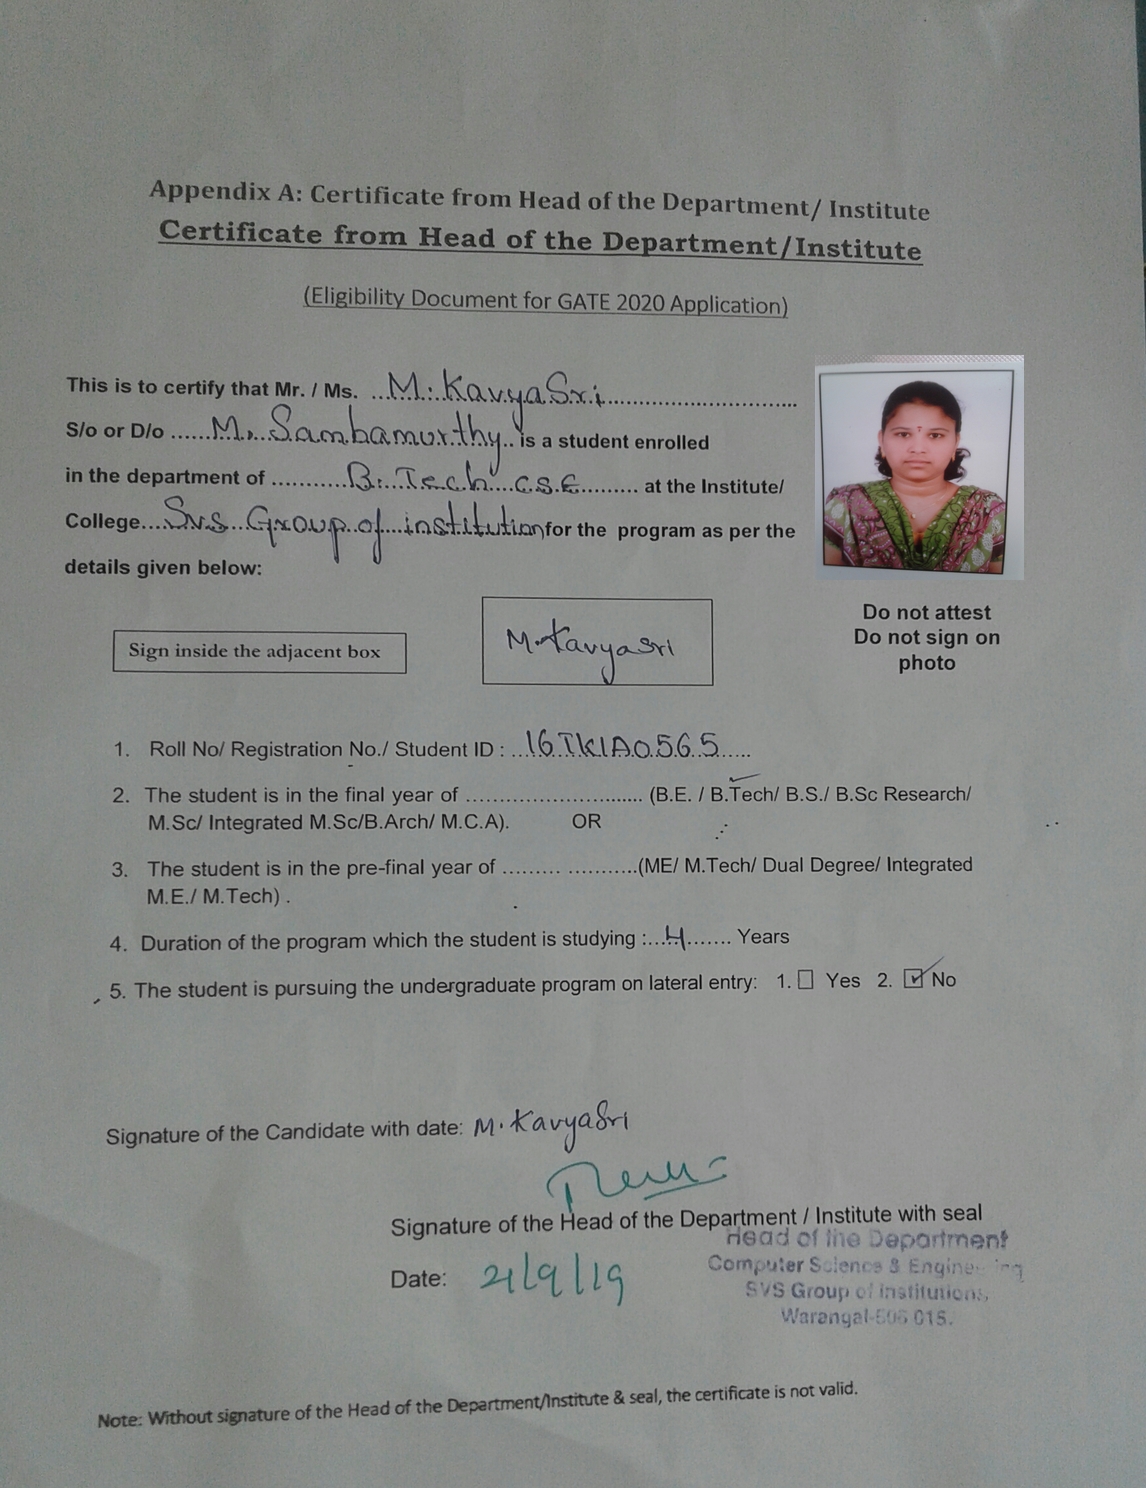 Appendix A: Certificate from Head of the Department/ Institute
Certificate from Head of the Department/Institute
(Eligibility Document for GATE 2020 Application)
This is to certify that Mr. / Ms. ...M.KavyaSri...............................
S/o or D/o ......M. Sambamurthy.. is a student enrolled
in the department of ..........B.Tech CSE......... at the Institute/
College....Svs Group of institution for the program as per the
details given below:
Do not attest
Do not sign on
photo
Sign inside the adjacent box
M.KavyaSri
1. Roll No/ Registration No./ Student ID : ...16TK1A0565.....
2. The student is in the final year of ............................... (B.E. / B.Tech/ B.S./ B.Sc Research/
M.Sc/ Integrated M.Sc/B.Arch/ M.C.A). OR
3. The student is in the pre-final year of ......... ...........(ME/ M.Tech/ Dual Degree/ Integrated
M.E./ M.Tech) .
4. Duration of the program which the student is studying :...4....... Years
5. The student is pursuing the undergraduate program on lateral entry: 1. ☐ Yes 2. ☑ No
Signature of the Candidate with date: M.KavyaSri
Signature of the Head of the Department / Institute with seal
Head of the Department
Computer Science & Engineering
SVS Group of Institutions,
Warangal-506 015.
Date: 21/9/19
Note: Without signature of the Head of the Department/Institute & seal, the certificate is not valid.